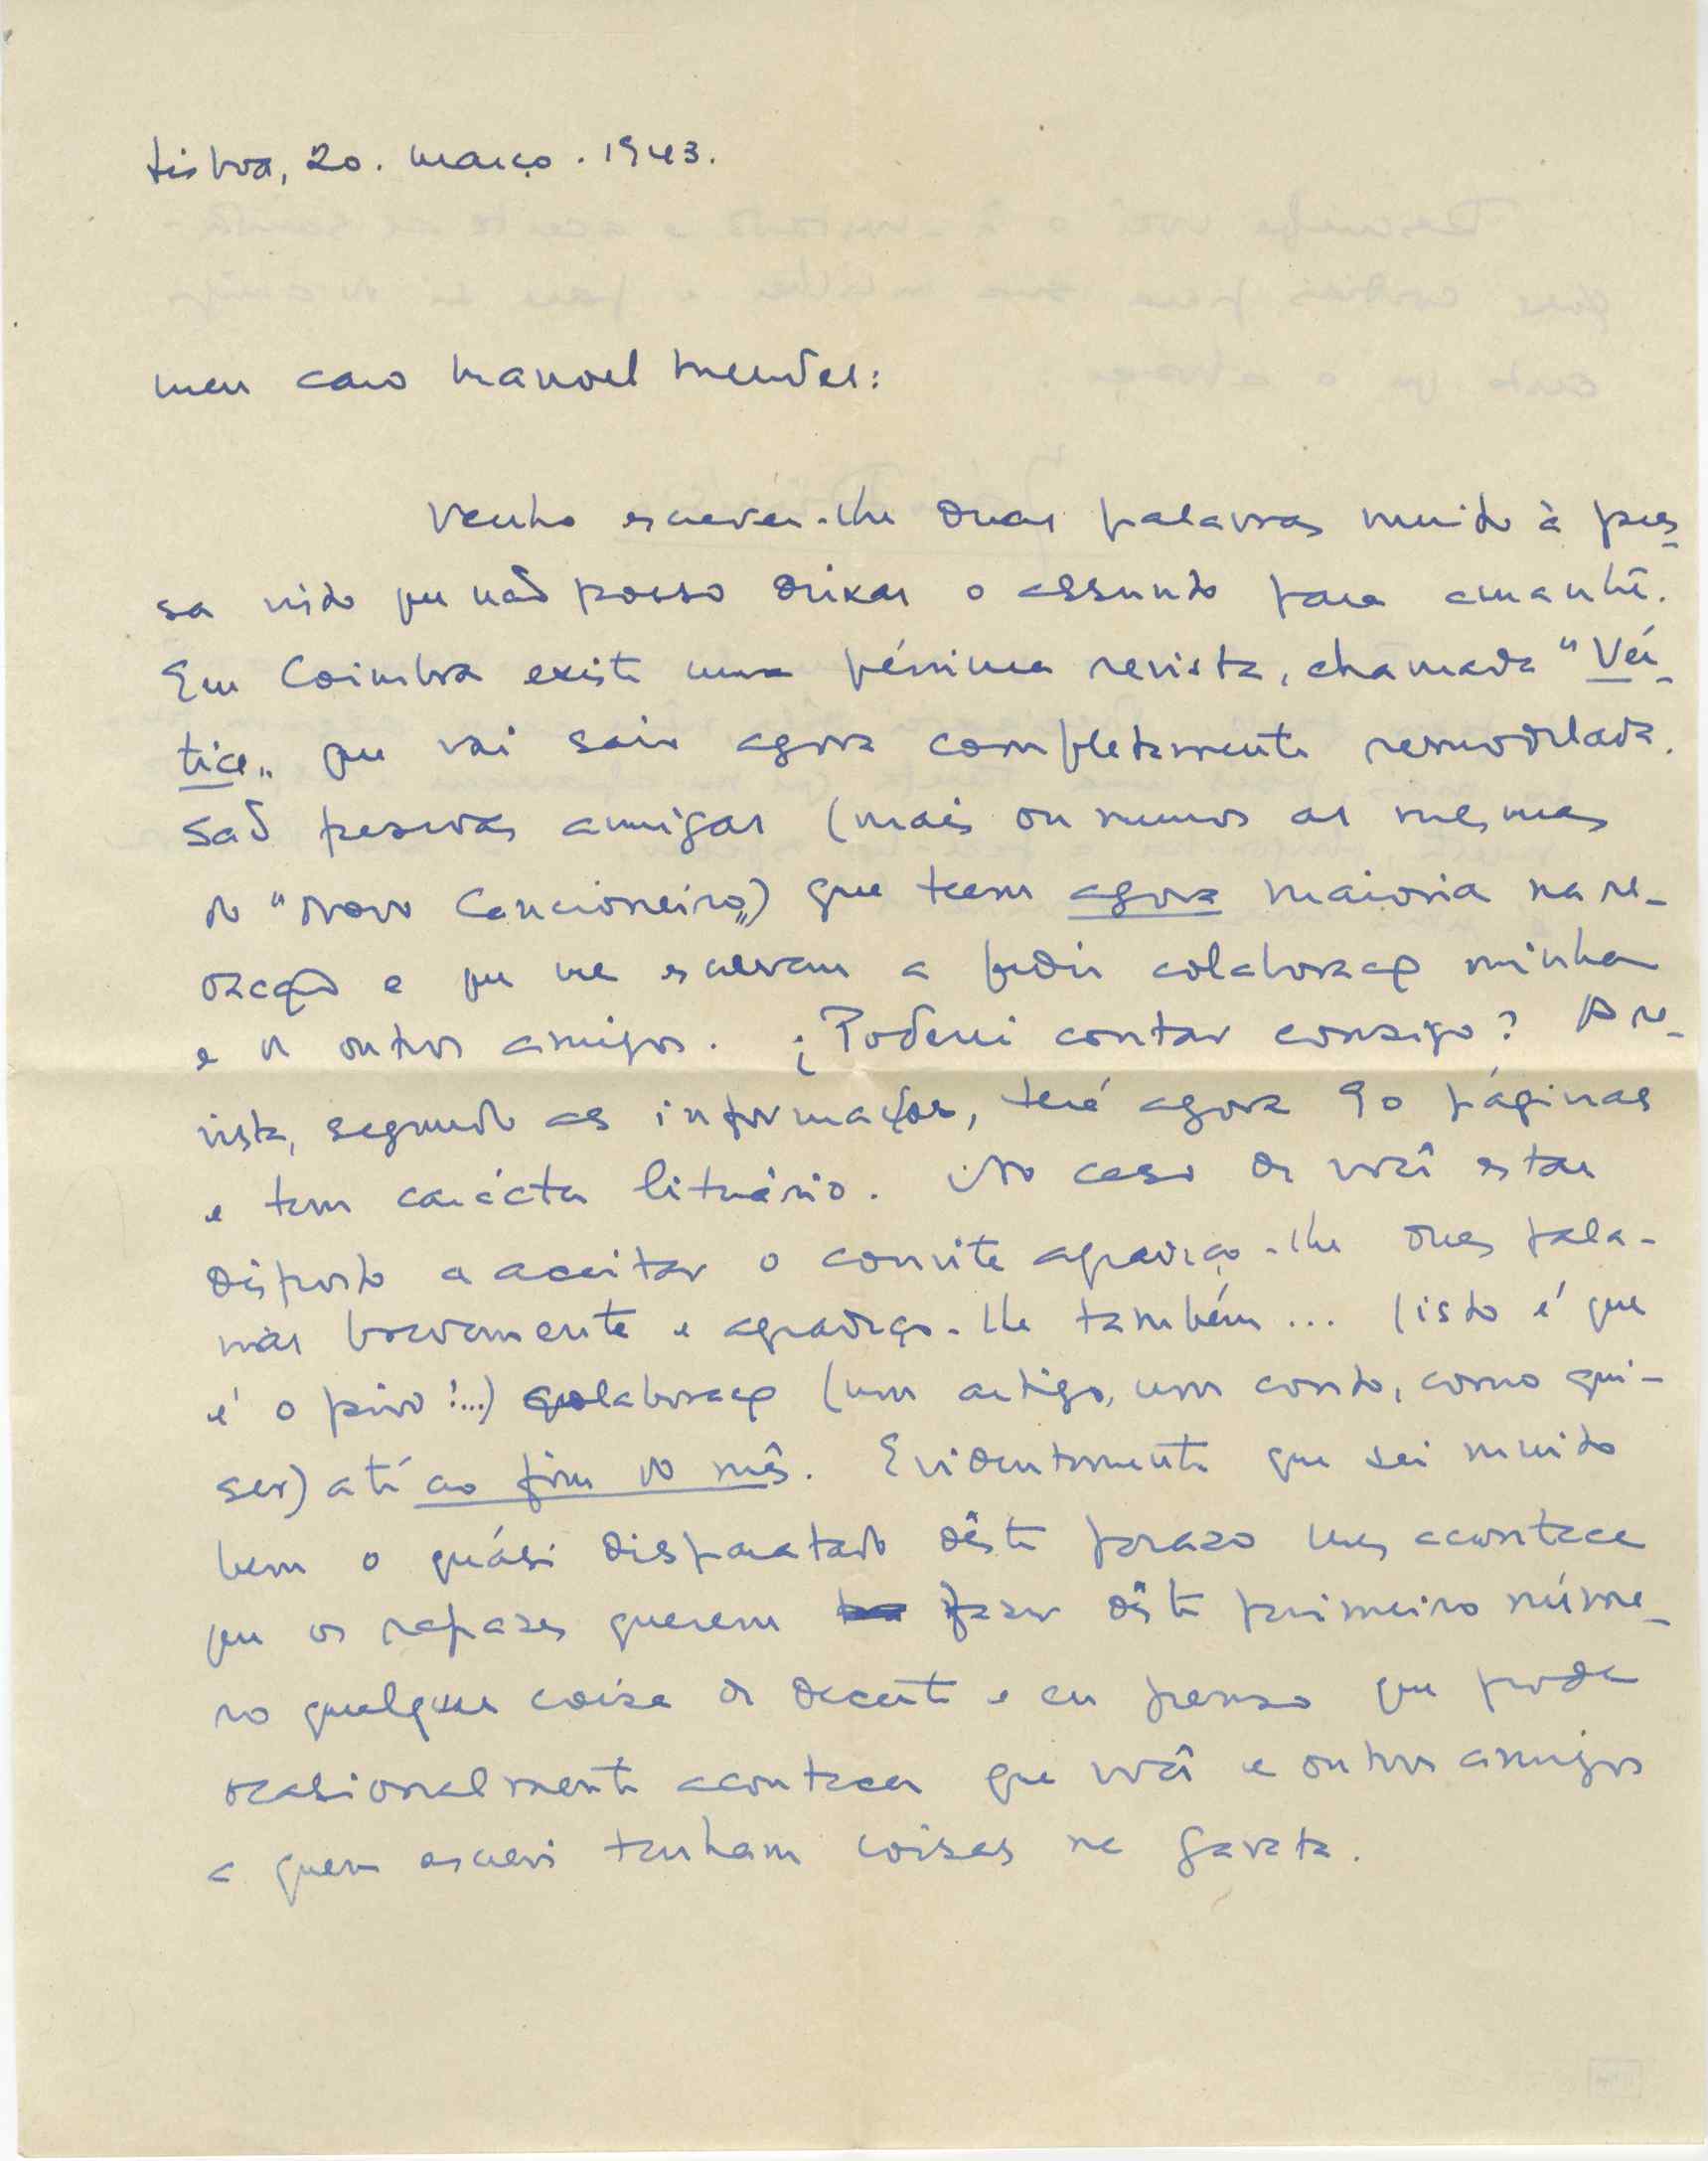 Lisboa, 20. março. 1943.
Meu caro Manoel Mendes:
Venho escrever-lhe duas palavras muito à pres-
sa visto que não posso deixar o assunto para amanhã.
Em Coimbra existe uma péssima revista, chamada "Vér-
tice" que vai sair agora completamente remodelada.
São pessoas amigas (mais ou menos as mesmas
do "Novo Cancioneiro") que teem agora maioria na re-
dacção e que me escrevem a pedir colaboração minha
e de outros amigos. ¿Poderei contar consigo? A re-
vista, segundo as informações, terá agora 90 páginas
e tem carácter literário. No caso de você estar
disposto a aceitar o convite agradeço-lhe duas pala-
vras brevemente e agradeço-lhe também... (isto é que
é o pior!...) colaboração (um artigo, um conto, como qui-
ser) até ao fim do mês. Evidentemente que sei muito
bem o quási disparatado dêste prazo mas acontece
que os rapazes querem fazer dêste primeiro núme-
ro qualquer coisa de decente e eu penso que pode
ocasionalmente acontecer que você e outros amigos
a quem escrevi tenham coisas na gaveta.